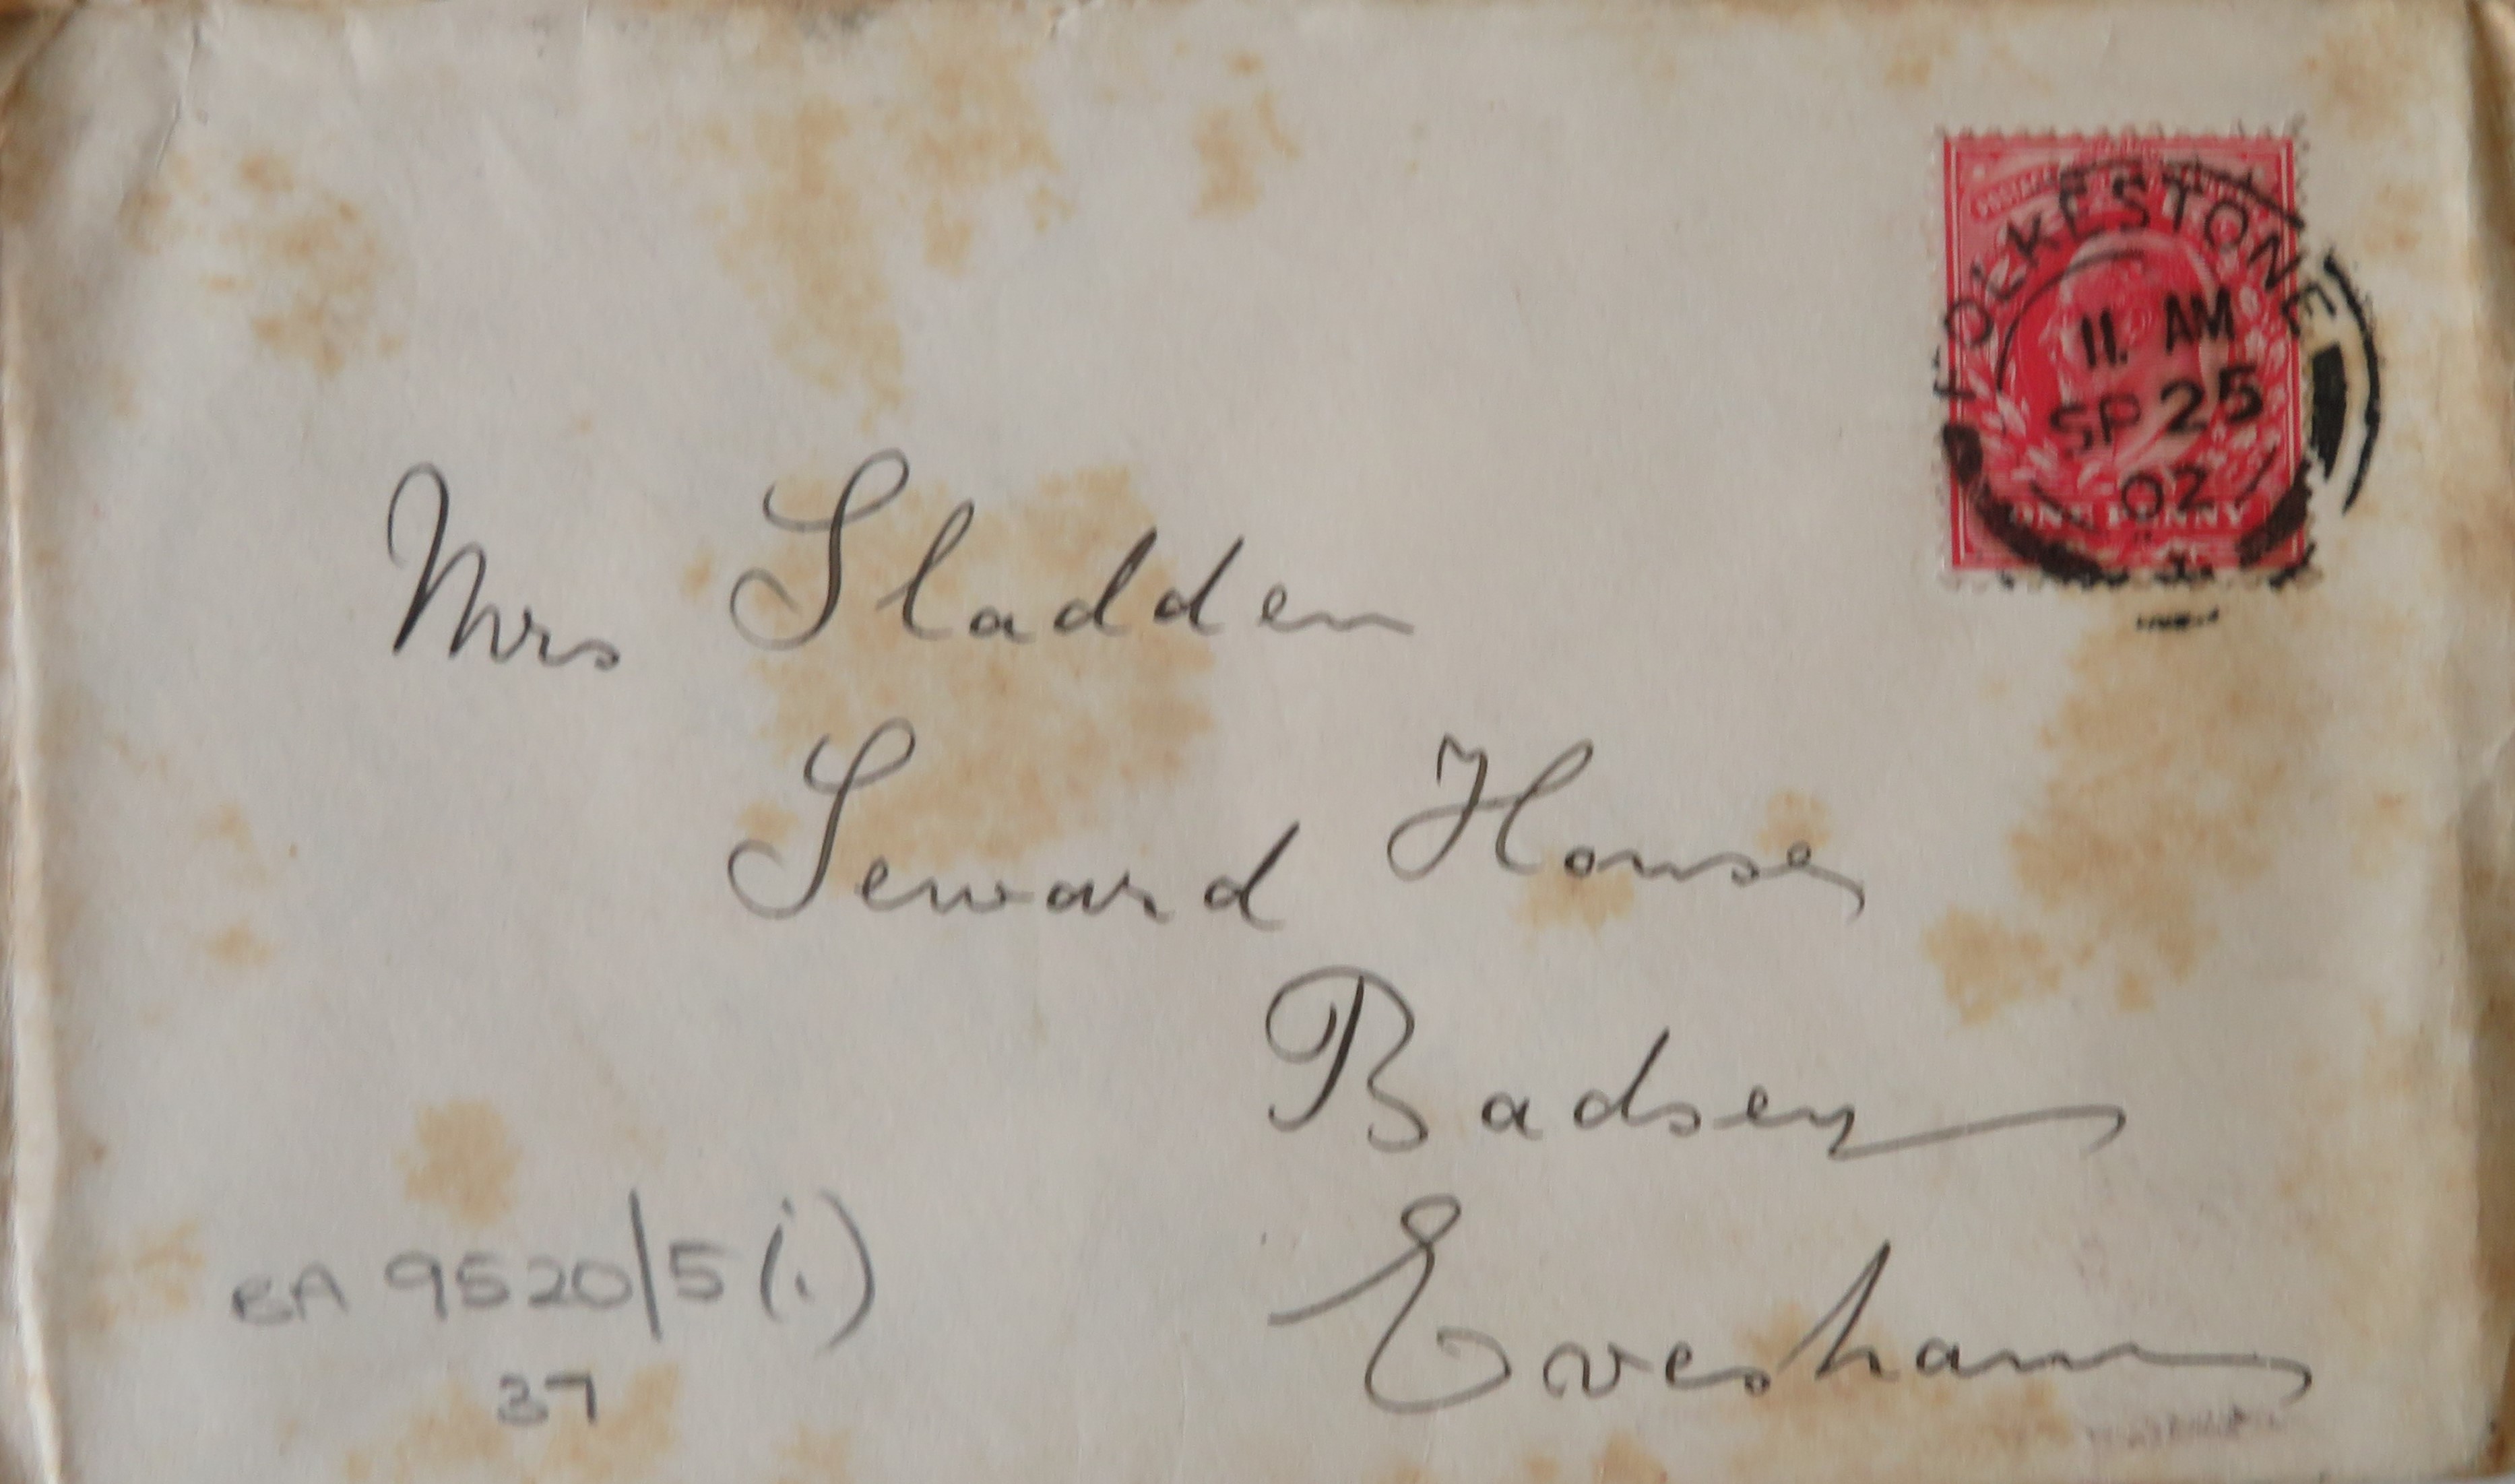 FOLKESTONE
11 AM
SP 25
02
ONE PENNY
Mrs Sladden
Seward House
Badsey
Evesham
BA 9520/5(i)
37